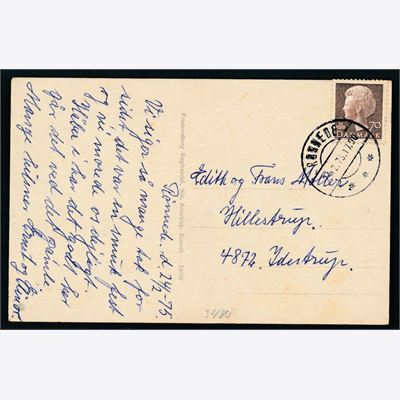 Rønnede, d. 24/2-75.
Vi siger så mange tak for
sidst det var en smuk fest
og vi morede os dejligt.
Håber i har det godt, her
går det ved det gamle.
Mange hilsner Knud og Ellinor.
RØNNEDE
70
DANMARK
Edith og Frans Møller
Hillestrup.
4872 Idestrup.